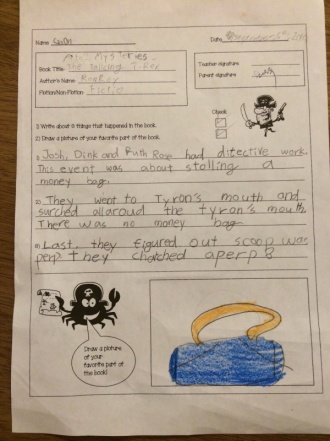 Name
Date
AtoZ Mysteries
Book Title: The Talking T-Rex
Author's Name:
Fiction/Non-Fiction:
Teacher signature
Parent signature
Check
1) Write about 3 things that happened in the book.
2) Draw a picture of your favorite part of the book.
1) Josh, Dink and Ruth Rose had ditective work.
This event was about stolling a
money bag.
2) They went to Tyron's mouth and
surched allaroud the tyron's mouth.
There was no money bag
3) Last, they figured out scoop was
perp. They chatched aperp
Draw a picture
of your
favorite part of
the book!